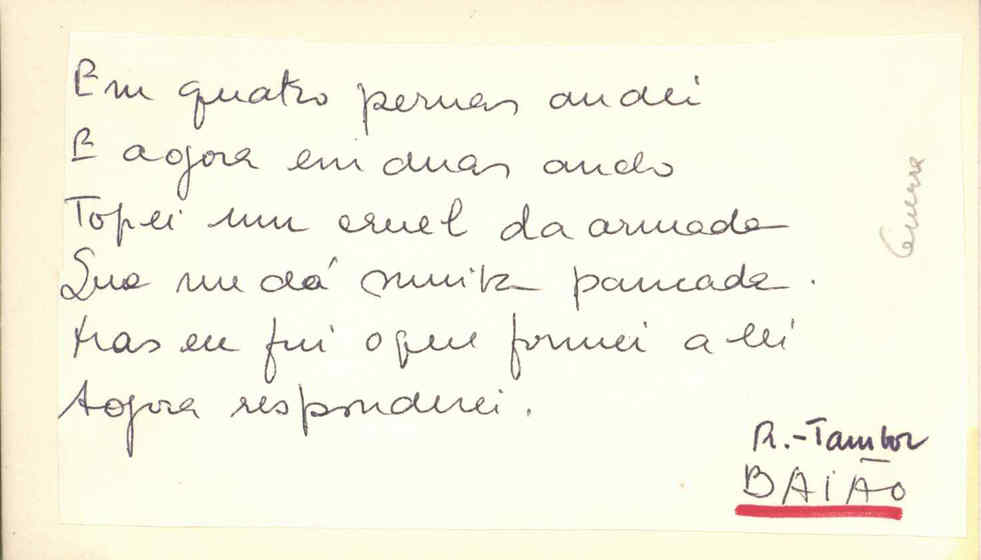 Em quatro pernas andei
E agora em duas ando
Topei um cruel da armada
Que me dá muita pancada.
Mas eu fui o que formei a lei
Agora responderei.
R.-Tambor
BAIÃO
Guerra